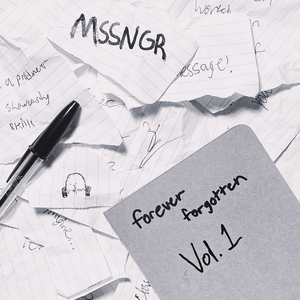 MSSNGR
essage!
a producer
showcasing
skills
imagine...
forever
forgotten
Vol. 1